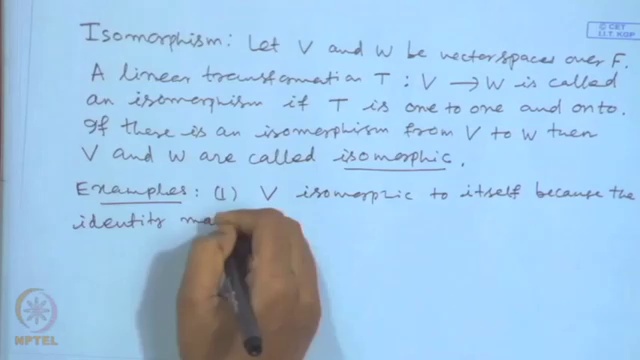 © CET
I.I.T. KGP
Isomorphism: Let V and W be vector spaces over F.
A linear transformation T : V → W is called
an isomorphism if T is one to one and onto.
If there is an isomorphism from V to W then
V and W are called isomorphic.
Examples: (1) V isomorphic to itself because the
identity ma
NPTEL